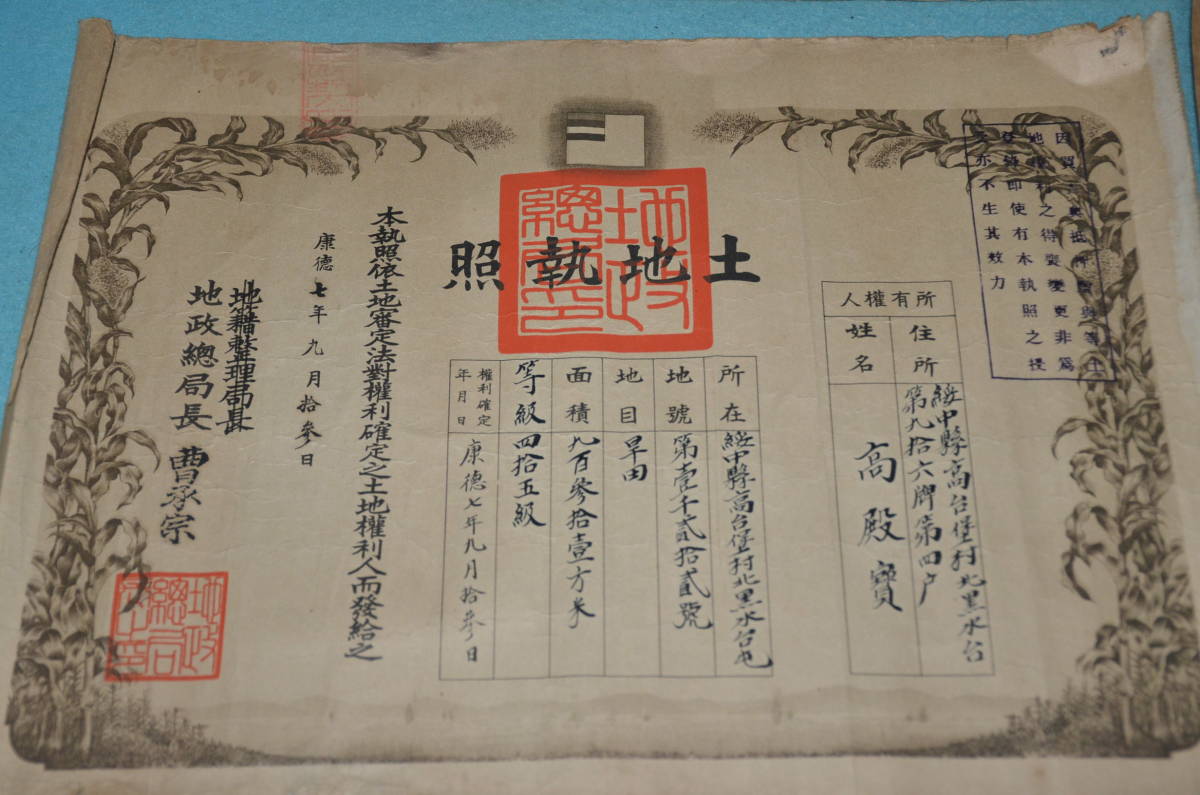 土地執照
因質
地 之得喪變更非爲
登錄卽使有本執照之授
亦不生其效力
所有權人
住所
綏中縣高台堡村北黑水台
第九拾六牌第四户
姓名
高殿寶
所在
綏中縣高台堡村北黑水台屯
地號
第壹千貳拾貳號
地目
旱田
面積
九百參拾壹方米
等級
四拾五級
權利確定年月日
康德七年九月拾參日
本執照依土地審定法對權利確定之土地權利人而發給之
康德七年九月拾參日
地籍整理局長
地政總局長 曹承宗
地政總局之印